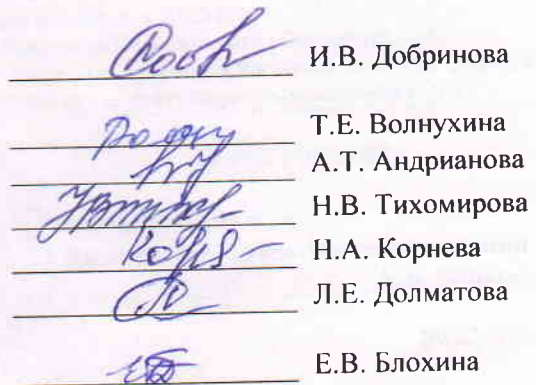 И.В. Добринова
Т.Е. Волнухина
А.Т. Андрианова
Н.В. Тихомирова
Н.А. Корнева
Л.Е. Долматова
Е.В. Блохина